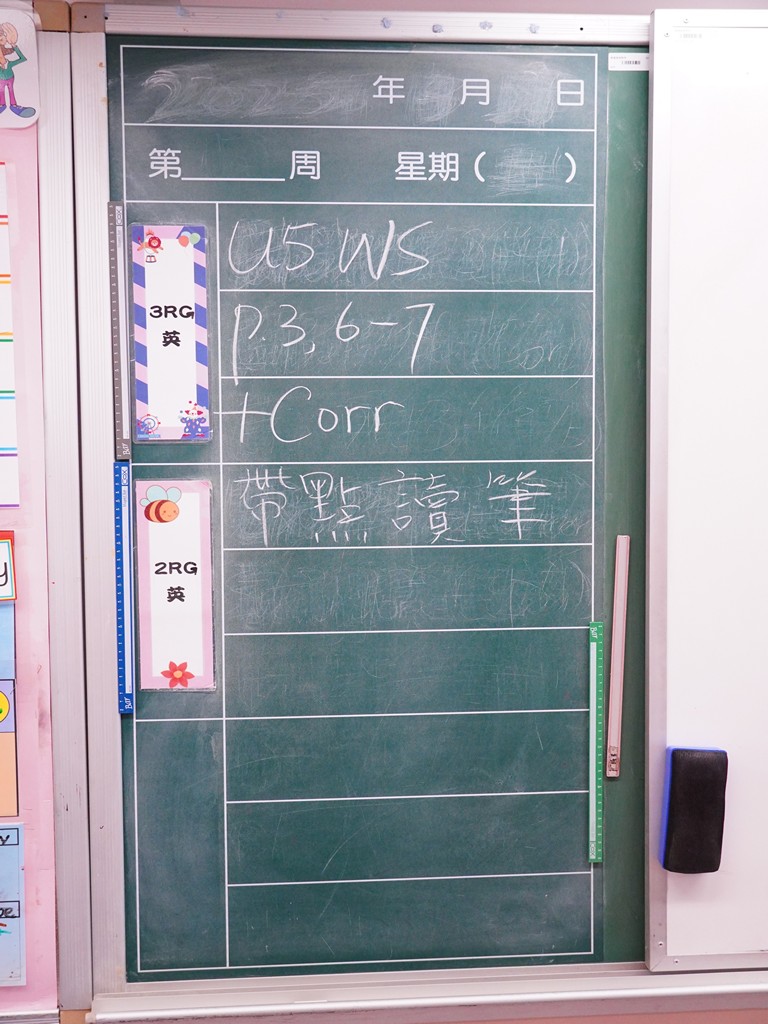 年 月 日
第______周 星期( )
3RG
英
U5 WS
p.3, 6-7
+Corr
2RG
英
帶點讀筆